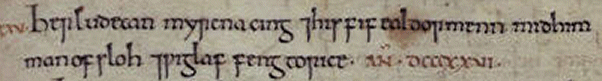 Her ludecan myrcna cing ⁊ his fif ealdormenn mid him
man ofsloh ⁊ ƿiglaf feng to rice. AN̄. DCCCXXVI.